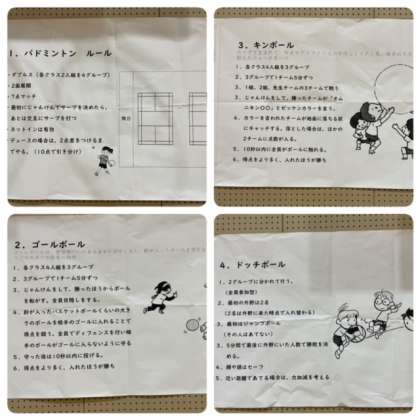 1. バドミントン ルール
・ダブルス（各クラス2人組を6グループ）
・2面展開
・7点マッチ
・最初にじゃんけんでサーブを決めたら、
あとは交互にサーブを打つ
・ネットインは有効
・デュースの場合は、2点差をつけるま
でやる。（10点で引き分け）
舞台
3. キンボール
1、各クラス4人組を3グループ
2、3グループで1チーム5分ずつ
3、1組、2組、先生チームの3チームで戦う
3、じゃんけんをして、勝ったチームが「オム
ニキン〇〇」とゼッケンカラーを言う。
4、カラーを言われたチームが地面に落ちる前
にキャッチする。落とした場合は、ほかの
2チームに点数が入る。
5、10秒以内に全員がボールに触れる。
6、得点をより多く、入れたほうが勝ち
2. ゴールボール
1、各クラス4人組を3グループ
2、3グループで1チーム5分ずつ
3、じゃんけんをして、勝ったほうからボール
を転がす。全員目隠しをする。
4、鈴が入ったバスケットボールくらいの大き
さのボールを相手のゴールに入れることで
得点を競う。全員でディフェンスを行い相
手のボールがゴールに入らないように守る
5、守った後は10秒以内に投げる。
6、得点をより多く、入れたほうが勝ち
4. ドッチボール
1、2グループに分かれて行う。
（全員参加型）
2、最初の外野は2名
（2名は外野に来た時点で入れ替わる）
3、最初はジャンプボール
（その人はあてない）
3、5分間で最後に外野にいた人数で勝敗を決
める。
4、顔や頭はセーフ
5、近い距離であてる場合は、力加減を考える